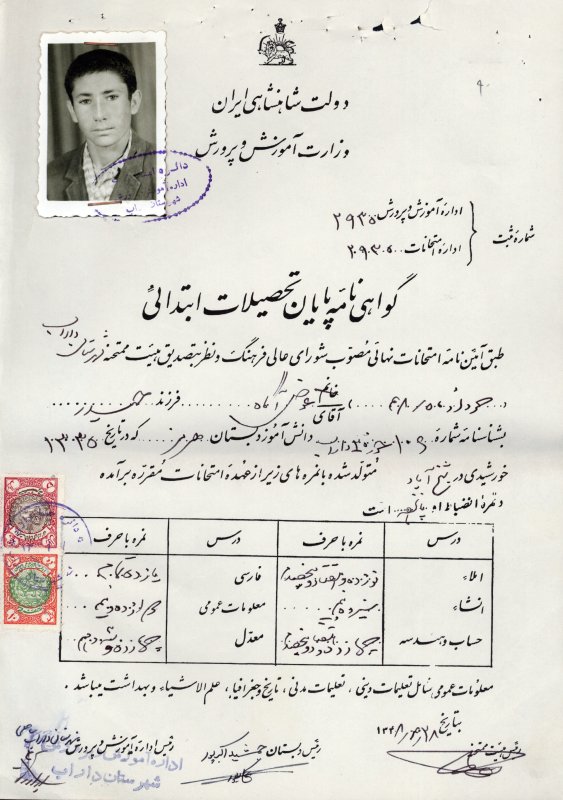 دولت شاهنشاهی ایران
وزارت آموزش و پرورش
شماره ثبت
اداره آموزش و پرورش ۲۹۳۵
اداره امتحانات ۲۰۹۳۰۵
گواهی نامه پایان تحصیلات ابتدائی
طبق آیین نامه امتحانات نهائی مصوب شورای عالی فرهنگ و نظر بتصدیق هیئت ممتحنه شهرستان داراب
در خرداد ۴۸ خانم آقای فرزند
بشناسنامه شماره ۱۰۹ حوزه داراب دانش آموز دبستان هرمز که در تاریخ ۱۳۳۵
خورشیدی در شیخ آباد متولد شده با نمره های زیر از عهده امتحانات مقرره برآمده
و نمره انضباط او است
درس نمره با حرف درس نمره با حرف
املاء فارسی
انشاء سیزده و نیم معلومات عمومی دوازده و نیم
حساب و هندسه معدل
معلومات عمومی شامل تعلیمات دینی ، تعلیمات مدنی ، تاریخ و جغرافیا ، علم الاشیاء و بهداشت میباشد .
بتاریخ ۱۳۴۸/۳/۲۸
رئیس هیئت ممتحنه
رئیس دبستان جمشید اکبرپور
رئیس اداره آموزش و پرورش شهرستان داراب
اداره آموزش
شهرستان داراب